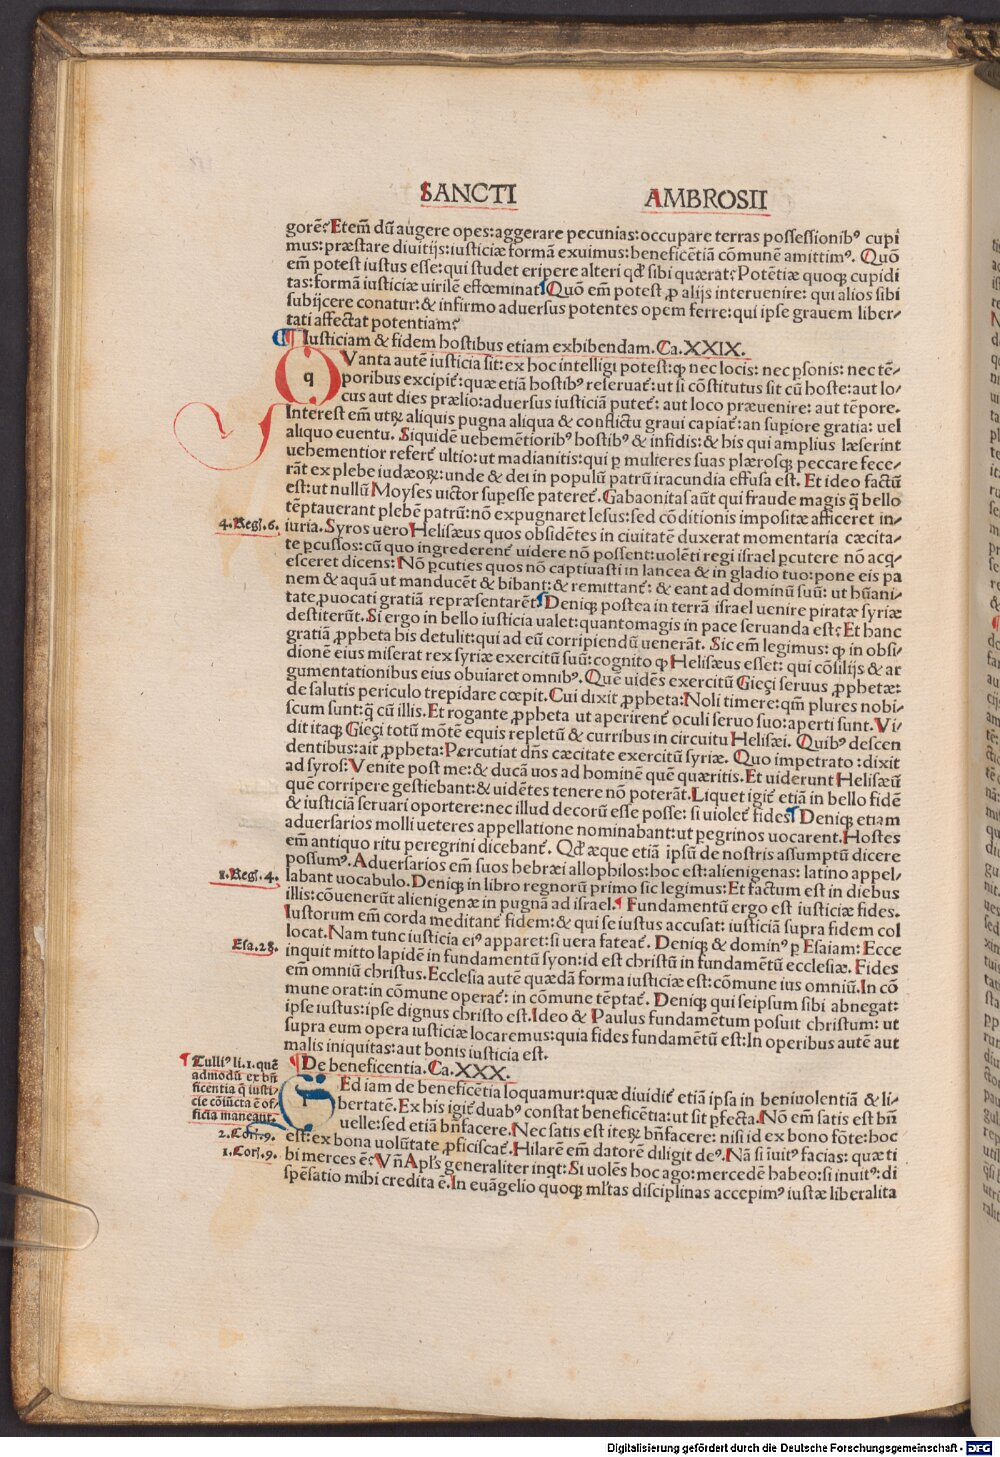 SANCTI AMBROSII
gorē? Etem̄ dū augere opes: aggerare pecunias: occupare terras possessionibꝰ cupi
mus: præstare diuitijs: iusticiæ formā exuimus: beneficētiā cōmunē amittimꝰ. Quō
em̄ potest iustus esse: qui studet eripere alteri qd̛ sibi quærat? Potētiæ quoqꝫ cupidi
tas: formā iusticiæ uirilē effœminat ¶ Quō em̄ potest ꝓ alijs interuenire: qui alios sibi
subijcere conatur: & infirmo aduersus potentes opem ferre: qui ipse grauem liber⸗
tati affectat potentiam?
¶ Iusticiam & fidem hostibus etiam exhibendam. Ca. XXIX.
QVanta autē iusticia sit: ex hoc intelligi potest: ꝙ nec locis: nec ꝑsonis: nec tē⸗
q
poribus excipit̄: quæ etiā hostibꝰ reseruat̄: ut si cōstitutus sit cū hoste: aut lo⸗
cus aut dies prælio: aduersus iusticiā putet̄: aut loco præuenire: aut tēpore.
Interest em̄ utꝝ aliquis pugna aliqua & conflictu graui capiat̄: an suꝑiore gratia: uel
aliquo euentu. Siquidē uehemētioribꝰ hostibꝰ & infidis: & his qui amplius læserint
uehementior refert̄ ultio: ut madianitis: qui ꝑ mulieres suas plærosqꝫ peccare fece⸗
rāt ex plebe iudæoꝝ: unde & dei in populū patrū iracundia effusa est. Et ideo factū
est: ut nullū Moyses uictor suꝑesse pateret̄. Gabaonitas aūt qui fraude magis q̄ bello
tēptauerant plebē patrū: nō expugnaret Iesus: sed cōditionis impositæ afficeret in⸗
4. Regͣ. 6. iuria. Syros uero Helisæus quos obsidētes in ciuitatē duxerat momentaria cæcita⸗
te ꝑcussos: cū quo ingrederent̄ uidere nō possent: uolēti regi israel ꝑcutere nō acq⸗
esceret dicens: Nō ꝑcuties quos nō captiuasti in lancea & in gladio tuo: pone eis pa
nem & aquā ut manducēt & bibant: & remittant̄: & eant ad dominū suū: ut hūani⸗
tate ꝓuocati gratiā repræsentarēt ¶ Deniqꝫ postea in terrā israel uenire piratæ syriæ
destiterūt. Si ergo in bello iusticia ualet: quantomagis in pace seruanda est? Et hanc
gratiā ꝓpheta his detulit: qui ad eū corripiendū uenerāt. Sic em̄ legimus: ꝙ in obsi⸗
dionē eius miserat rex syriæ exercitū suū: cognito ꝙ Helisæus esset: qui cōsilijs & ar
gumentationibus eius obuiaret omnibꝰ. Quē uidēs exercitū Gieçi seruus ꝓphetæ:
de salutis periculo trepidare cœpit. Cui dixit ꝓpheta: Noli timere: qm̄ plures nobi⸗
scum sunt: q̄ cū illis. Et rogante ꝓpheta ut aperirent̄ oculi seruo suo: aperti sunt. Vi⸗
dit itaqꝫ Gieçi totū mōtē equis repletū & curribus in circuitu Helisæi. Quibꝰ descen
dentibus: ait ꝓpheta: Percutiat dn̄s cæcitate exercitū syriæ. Quo impetrato: dixit
ad syros: Venite post me: & ducā uos ad hominē quē quæritis. Et uiderunt Helisæū
quē corripere gestiebant: & uidētes tenere nō poterāt. Liquet igit̄ etiā in bello fidē
& iusticiā seruari oportere: nec illud decorū esse posse: si uiolet̄ fides ¶ Deniqꝫ etiam
aduersarios molli ueteres appellatione nominabant: ut ꝑegrinos uocarent. Hostes
em̄ antiquo ritu peregrini dicebant̄. Qd̛ æque etiā ipsū de nostris assumptū dicere
possumꝰ. Aduersarios em̄ suos hebræi allophilos: hoc est: alienigenas: latino appel⸗
1. Regͣ. 4. labant uocabulo. Deniqꝫ in libro regnorū primo sic legimus: Et factum est in diebus
illis: cōuenerūt alienigenæ in pugnā ad israel. ¶ Fundamentū ergo est iusticiæ fides.
Iustorum em̄ corda meditant̄ fidem: & qui se iustus accusat: iusticiā supra fidem col
locat. Nam tunc iusticia eiꝰ apparet: si uera fateat̄. Deniqꝫ & dominꝰ ꝑ Esaiam: Ecce
Esa. 28. inquit mitto lapidē in fundamentū syon: id est christū in fundamētū ecclesiæ. Fides
em̄ omniū christus. Ecclesia autē quædā forma iusticiæ est: cōmune ius omniū. In cō
mune orat: in cōmune operat̄: in cōmune tēptat̄. Deniqꝫ qui seipsum sibi abnegat:
ipse iustus: ipse dignus christo est. Ideo & Paulus fundamētum posuit christum: ut
supra eum opera iusticiæ locaremus: quia fides fundamētū est: In operibus autē aut
malis iniquitas: aut bonis iusticia est.
¶ De beneficentia. Ca. XXX.
¶ Tulliꝰ li. 1. quē
admodū ex bn̄
ficentia q̄ iusti⸗
cie cōiūcta ē of⸗
ficia maneant.
2. Corͣ. 9.
1. Corͣ. 9.
SEd iam de beneficētia loquamur: quæ diuidit̄ etiā ipsa in beniuolentiā & li⸗
bertatē. Ex his igit̄ duabꝰ constat beneficētia: ut sit ꝑfecta. Nō em̄ satis est bn̄
uelle: sed etiā bn̄facere. Nec satis est iteꝝ bn̄facere: nisi id ex bono fōte: hoc
est: ex bona uolūtate ꝓficiscat̄. Hilarē em̄ datorē diligit deꝰ. Nā si īuitꝰ facias: quæ ti
bi merces ē? Vn̄ Apl̄s generaliter inqt: Si uolēs hoc ago: mercedē habeo: si inuitꝰ: di
spēsatio mihi credita ē. In euāgelio quoqꝫ ml̄tas disciplinas accepimꝰ iustæ liberalita
Digitalisierung gefördert durch die Deutsche Forschungsgemeinschaft - DFG